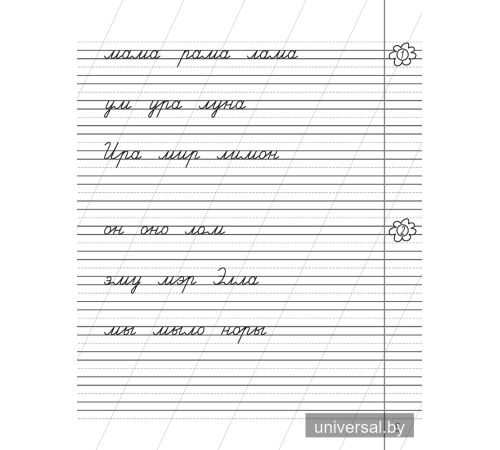 мама рама лама
1
ум ура луна
Ира мир лимон
он оно лом
2
эму мэр Элла
мы мыло норы
universal.by